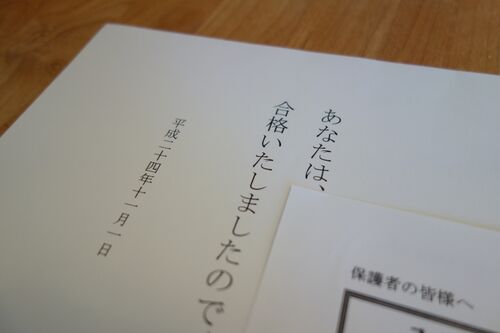 あなたは、
合格いたしましたので
平成二十四年十一月一日
保護者の皆様へ